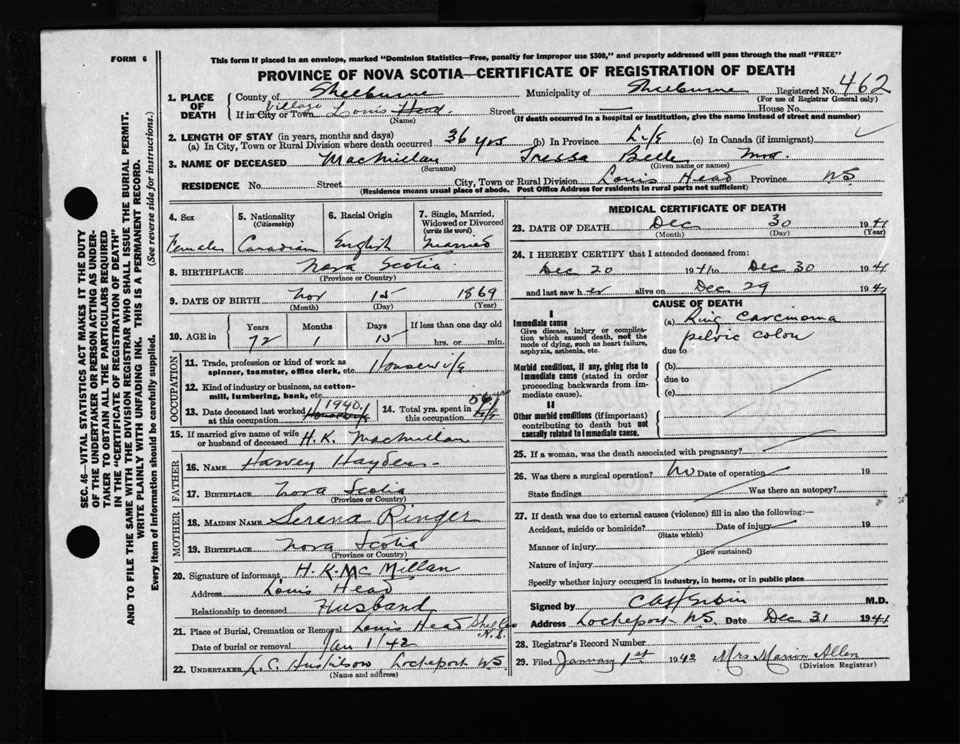 FORM 6
This form if placed in an envelope, marked "Dominion Statistics—Free, penalty for improper use $300," and properly addressed will pass through the mail "FREE"
PROVINCE OF NOVA SCOTIA—CERTIFICATE OF REGISTRATION OF DEATH
SEC. 46—VITAL STATISTICS ACT MAKES IT THE DUTY
OF THE UNDERTAKER OR PERSON ACTING AS UNDER-
TAKER TO OBTAIN ALL THE PARTICULARS REQUIRED
IN THE "CERTIFICATE OF REGISTRATION OF DEATH"
AND TO FILE THE SAME WITH THE DIVISION REGISTRAR WHO SHALL ISSUE THE BURIAL PERMIT.
WRITE PLAINLY WITH UNFADING INK. THIS IS A PERMANENT RECORD.
Every item of information should be carefully supplied. (See reverse side for instructions.)
1. PLACE OF DEATH County of Shelburne Municipality of Shelburne Registered No. 462
(For use of Registrar General only)
Village
If in City or Town Louis Head Street House No.
(Name) (If death occurred in a hospital or institution, give name instead of street and number)
2. LENGTH OF STAY (in years, months and days)
(a) In City, Town or Rural Division where death occurred 36 yrs (b) In Province Life (c) In Canada (if immigrant)
3. NAME OF DECEASED MacMillan Tressa Belle Mrs.
(Surname) (Given name or names)
RESIDENCE No. Street City, Town or Rural Division Louis Head Province NS.
(Residence means usual place of abode. Post Office Address for residents in rural parts not sufficient)
4. Sex 5. Nationality (Citizenship) 6. Racial Origin 7. Single, Married, Widowed or Divorced (write the word)
Female Canadian English Married
8. BIRTHPLACE Nova Scotia
(Province or Country)
9. DATE OF BIRTH Nov 15 1869
(Month) (Day) (Year)
10. AGE in Years Months Days If less than one day old
72 1 15 hrs. or min.
OCCUPATION
11. Trade, profession or kind of work as spinner, teamster, office clerk, etc. Housewife
12. Kind of industry or business, as cotton-mill, lumbering, bank, etc.
13. Date deceased last worked at this occupation 1940. 14. Total yrs. spent in this occupation 56 yrs
15. If married give name of wife or husband of deceased H.K. MacMillan
FATHER
16. NAME Harvey Hayden
17. BIRTHPLACE Nova Scotia
MOTHER
18. MAIDEN NAME Serena Ringer
19. BIRTHPLACE Nova Scotia
(Province or Country)
20. Signature of informant H.K. McMillan
Address Louis Head
Relationship to deceased Husband
21. Place of Burial, Cremation or Removal Louis Head Shel Co N.S.
Date of burial or removal Jan 1/42
22. UNDERTAKER Lockeport NS
(Name and address)
MEDICAL CERTIFICATE OF DEATH
23. DATE OF DEATH Dec 30 1941
(Month) (Day) (Year)
24. I HEREBY CERTIFY that I attended deceased from:
Dec 20 1941 to Dec 30 1941
and last saw her alive on Dec 29 1941
CAUSE OF DEATH
I
Immediate cause
Give disease, injury or complication which caused death, not the mode of dying, such as heart failure, asphyxia, asthenia, etc.
(a) Ring carcinoma
pelvic colon
due to
Morbid conditions, if any, giving rise to immediate cause (stated in order proceeding backwards from immediate cause)
(b)
due to
(c)
II
Other morbid conditions (if important) contributing to death but not causally related to immediate cause.
25. If a woman, was the death associated with pregnancy?
26. Was there a surgical operation? No Date of operation 19
State findings Was there an autopsy?
27. If death was due to external causes (violence) fill in also the following:—
Accident, suicide or homicide? Date of injury 19
(State which)
Manner of injury
(How sustained)
Nature of injury
Specify whether injury occurred in industry, in home, or in public place
Signed by M.D.
Address Lockeport NS. Date Dec 31 1941
28. Registrar's Record Number
29. Filed January 1st 1942 Mrs Marion Allen
(Division Registrar)